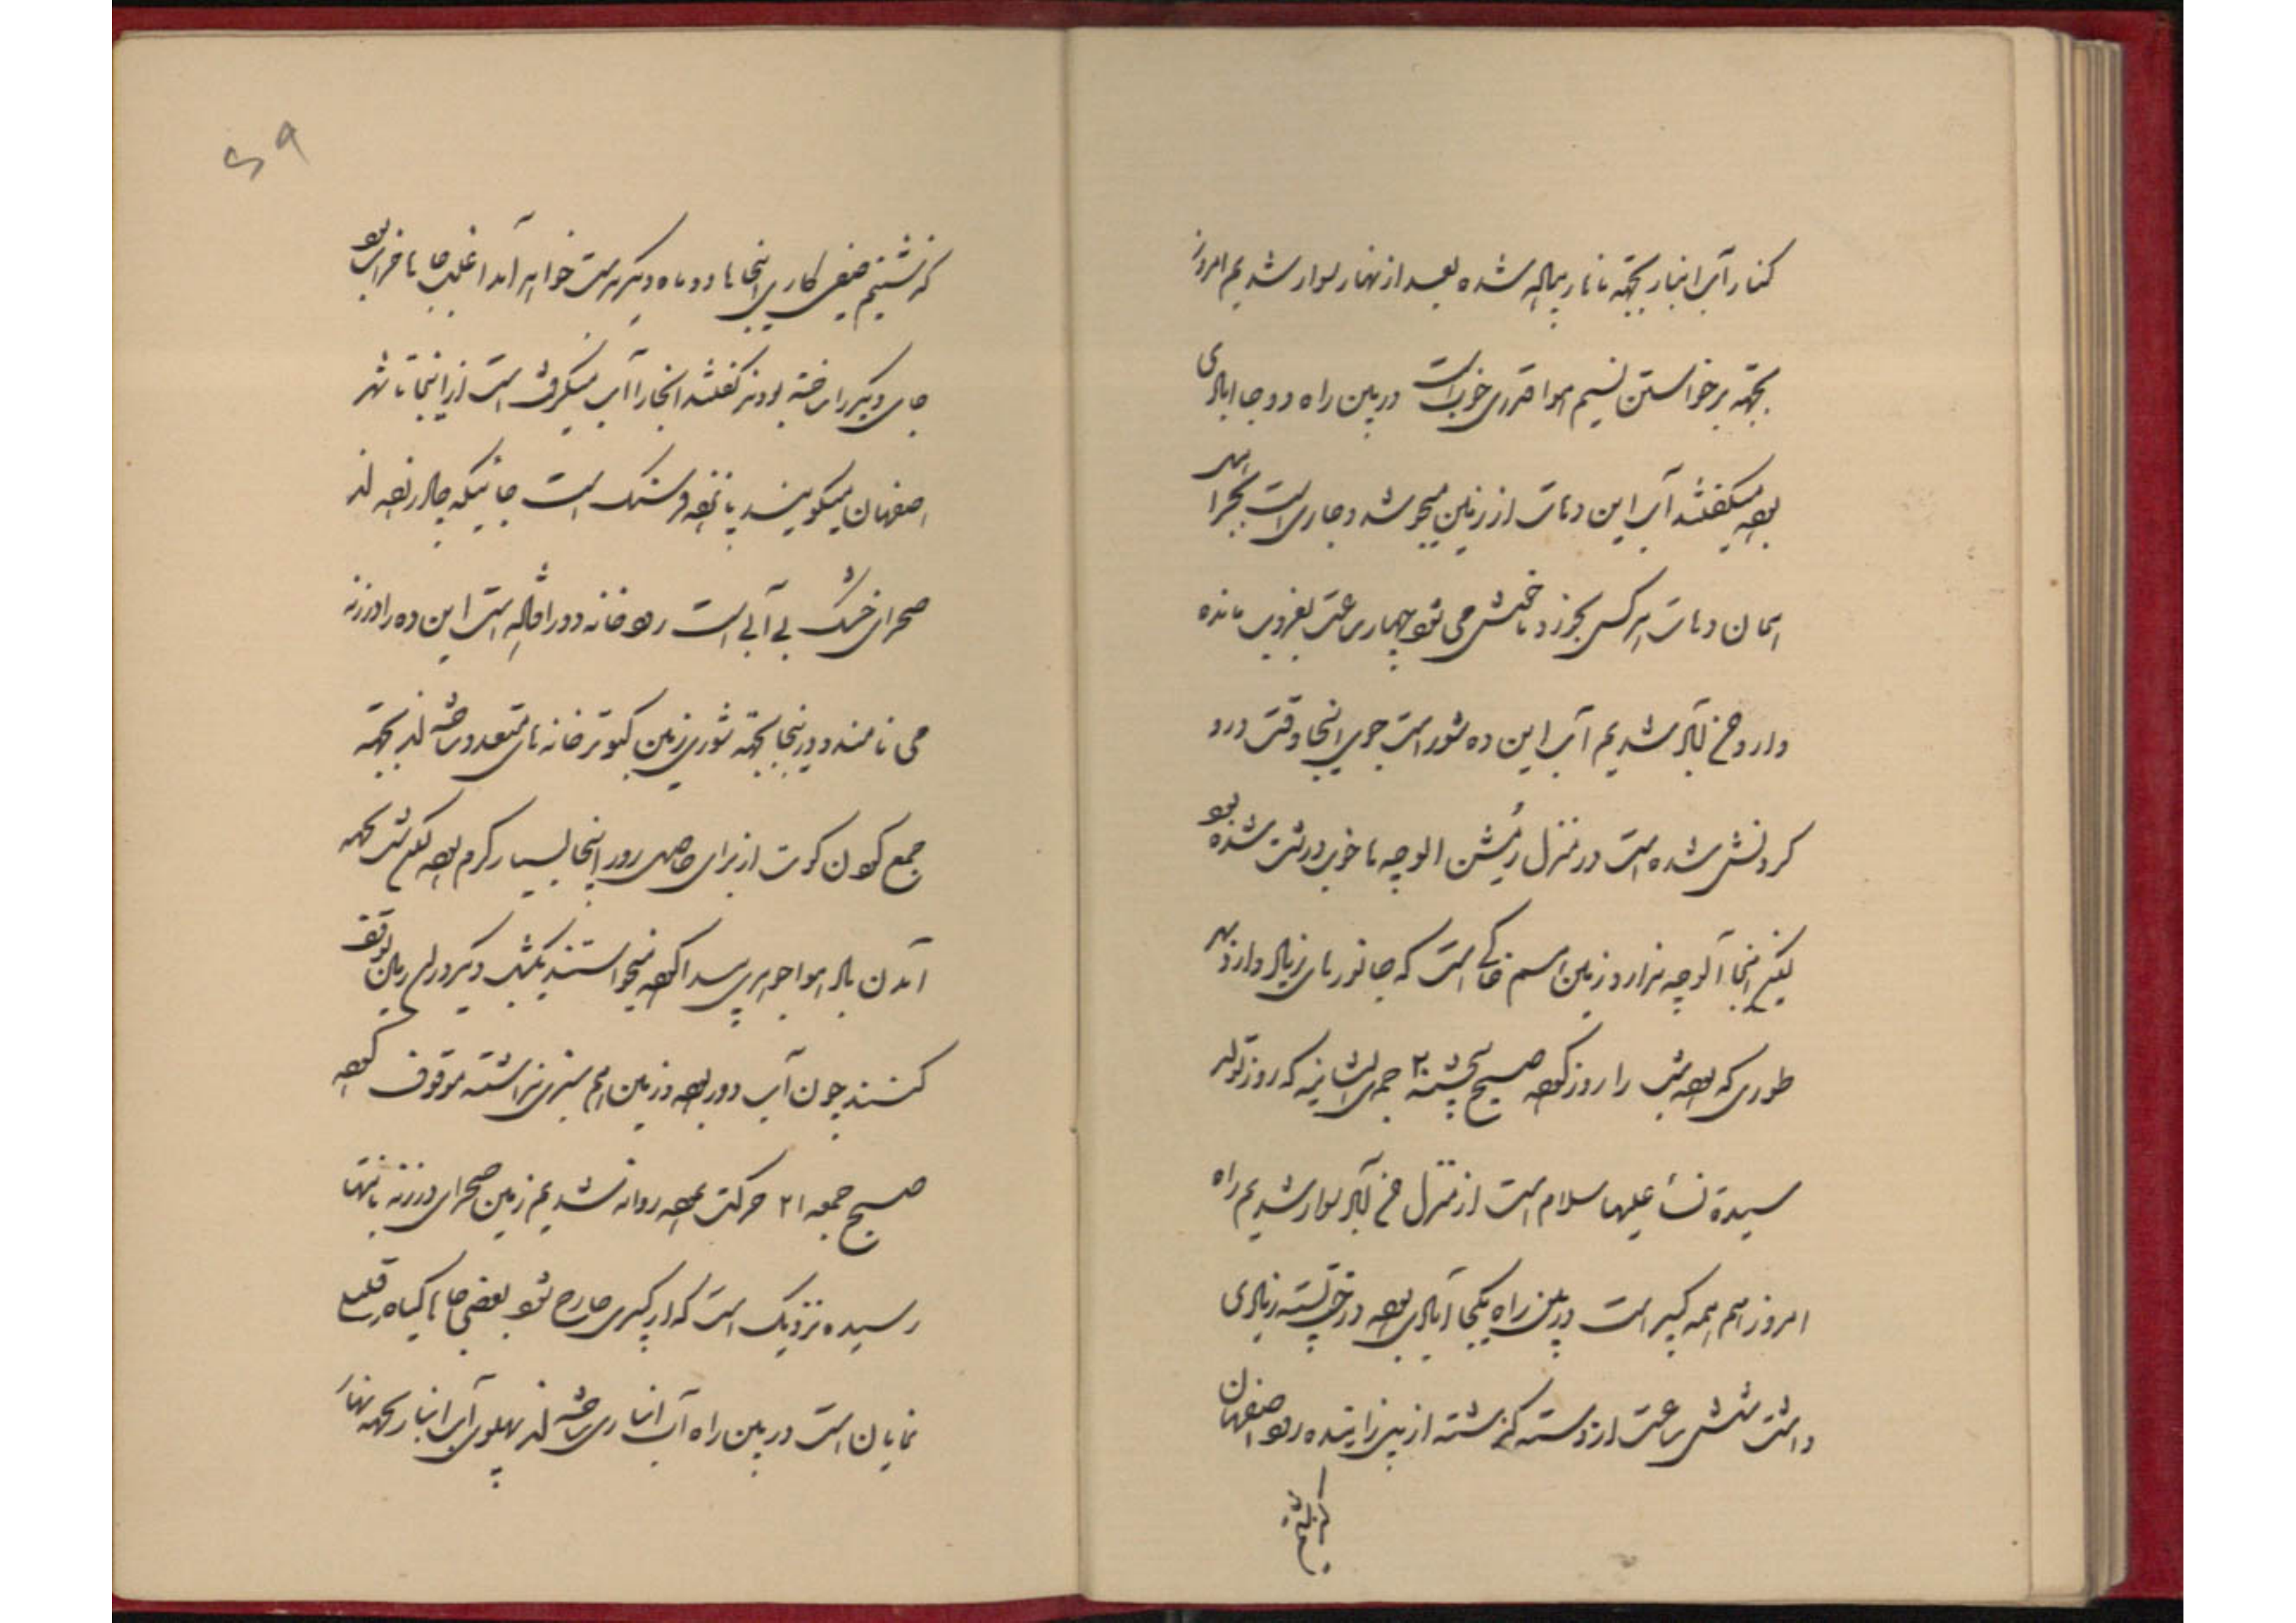 کنار آب انبار بجهة ناهار پیاله شده بعد از نهار سوار شدیم امروز
بجهة برخواستن نسیم هوا قدری خوب است در بین راه دو جا ابادی
بوده میکفتند آب این دهات از زمین میجوشد و جاری است بجز اهل
همان دهات هرکس بخورد ناخوش می شود چهار ساعت بغروب مانده
وارد آباد شدیم آب این ده شور است جوی اینجا وقت درو
کردنش شده است در منزل الوچه ها خوب درشت شده بود
لیکن اینجا آلوچه ندارد زمین هم خاکی است که جانورهای زیاد دارد بهر
طوری که بوده شب را روز کرده صبح پنجشنبه ۲۰ جمدی الثانیه که روز تولد
سیدة نسأ علیها سلام است از منزل آباد سوار شدیم راه
امروز هم همه کبیر است در بین راه یکجا آبادی بوده درخت پسته زیادی
داشت شش ساعت از دسته کذشته از پل زاینده رود اصفهان
که نشتیم ضیفی کاری اینجاها دو ماه دیکر بدست خواهد آمد اغلب جاها خراب بود
جای دیکر را ساخته بودند کفتند انجا را آب میکرفته است از اینجا تا شهر
اصفهان میکویند پانزده فرسنک است جائیکه چادر زده اند
صحرای خشک بی آبی است رودخانه دور افتاده است این ده را ورزنه
می نامند و در اینجا بجهة شوری زمین کبوتر خانه های متعدد ساخته اند بجهة
جمع کردن کوت از برای حاصل روز اینجا بسیار کرم بوده لیکن شب بجهه
آمدن باد هوا جوهری پیدا کرده میخواستند یکشب دیکر در این زمین توقف
کنند چون آب دور بوده و زمین هم سبزی نداشته موقوف کرده
صبح جمعه ۲۱ حرکت نموده روانه شدیم زمین صحرای ورزنه بانتها
رسیده نزدیک است که از کبیری خارج شود بعضی جاها کیاه قلیلی
نمایان است در بین راه آب انباری ساخته اند پهلوی آب انبار بجهه نهار